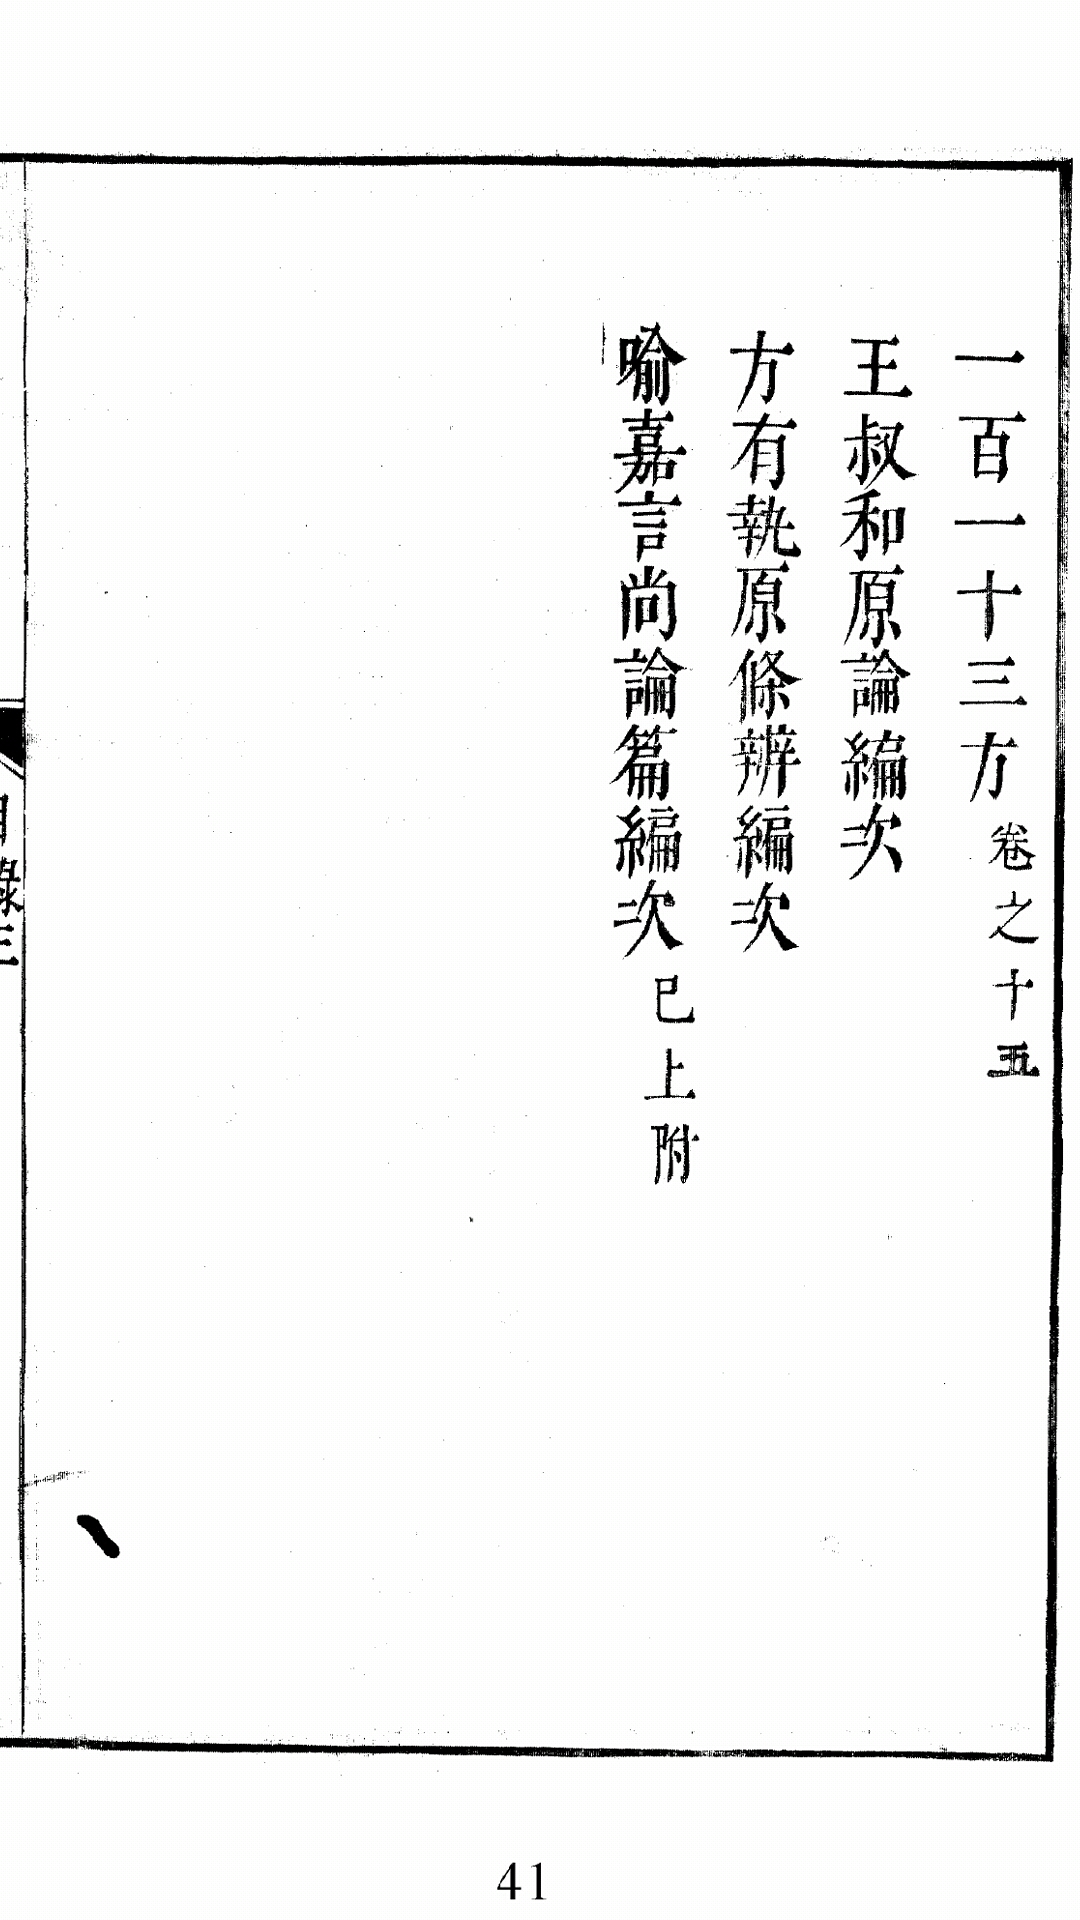 一百一十三方卷之十五
王叔和原論編次
方有執原條辨編次
喻嘉言尚論篇編次已上附
目錄三
41